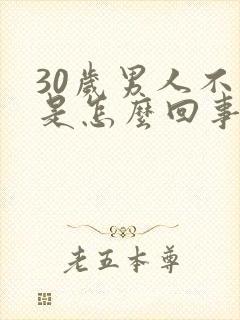 30歲男人不
是怎麼回事
老五本尊